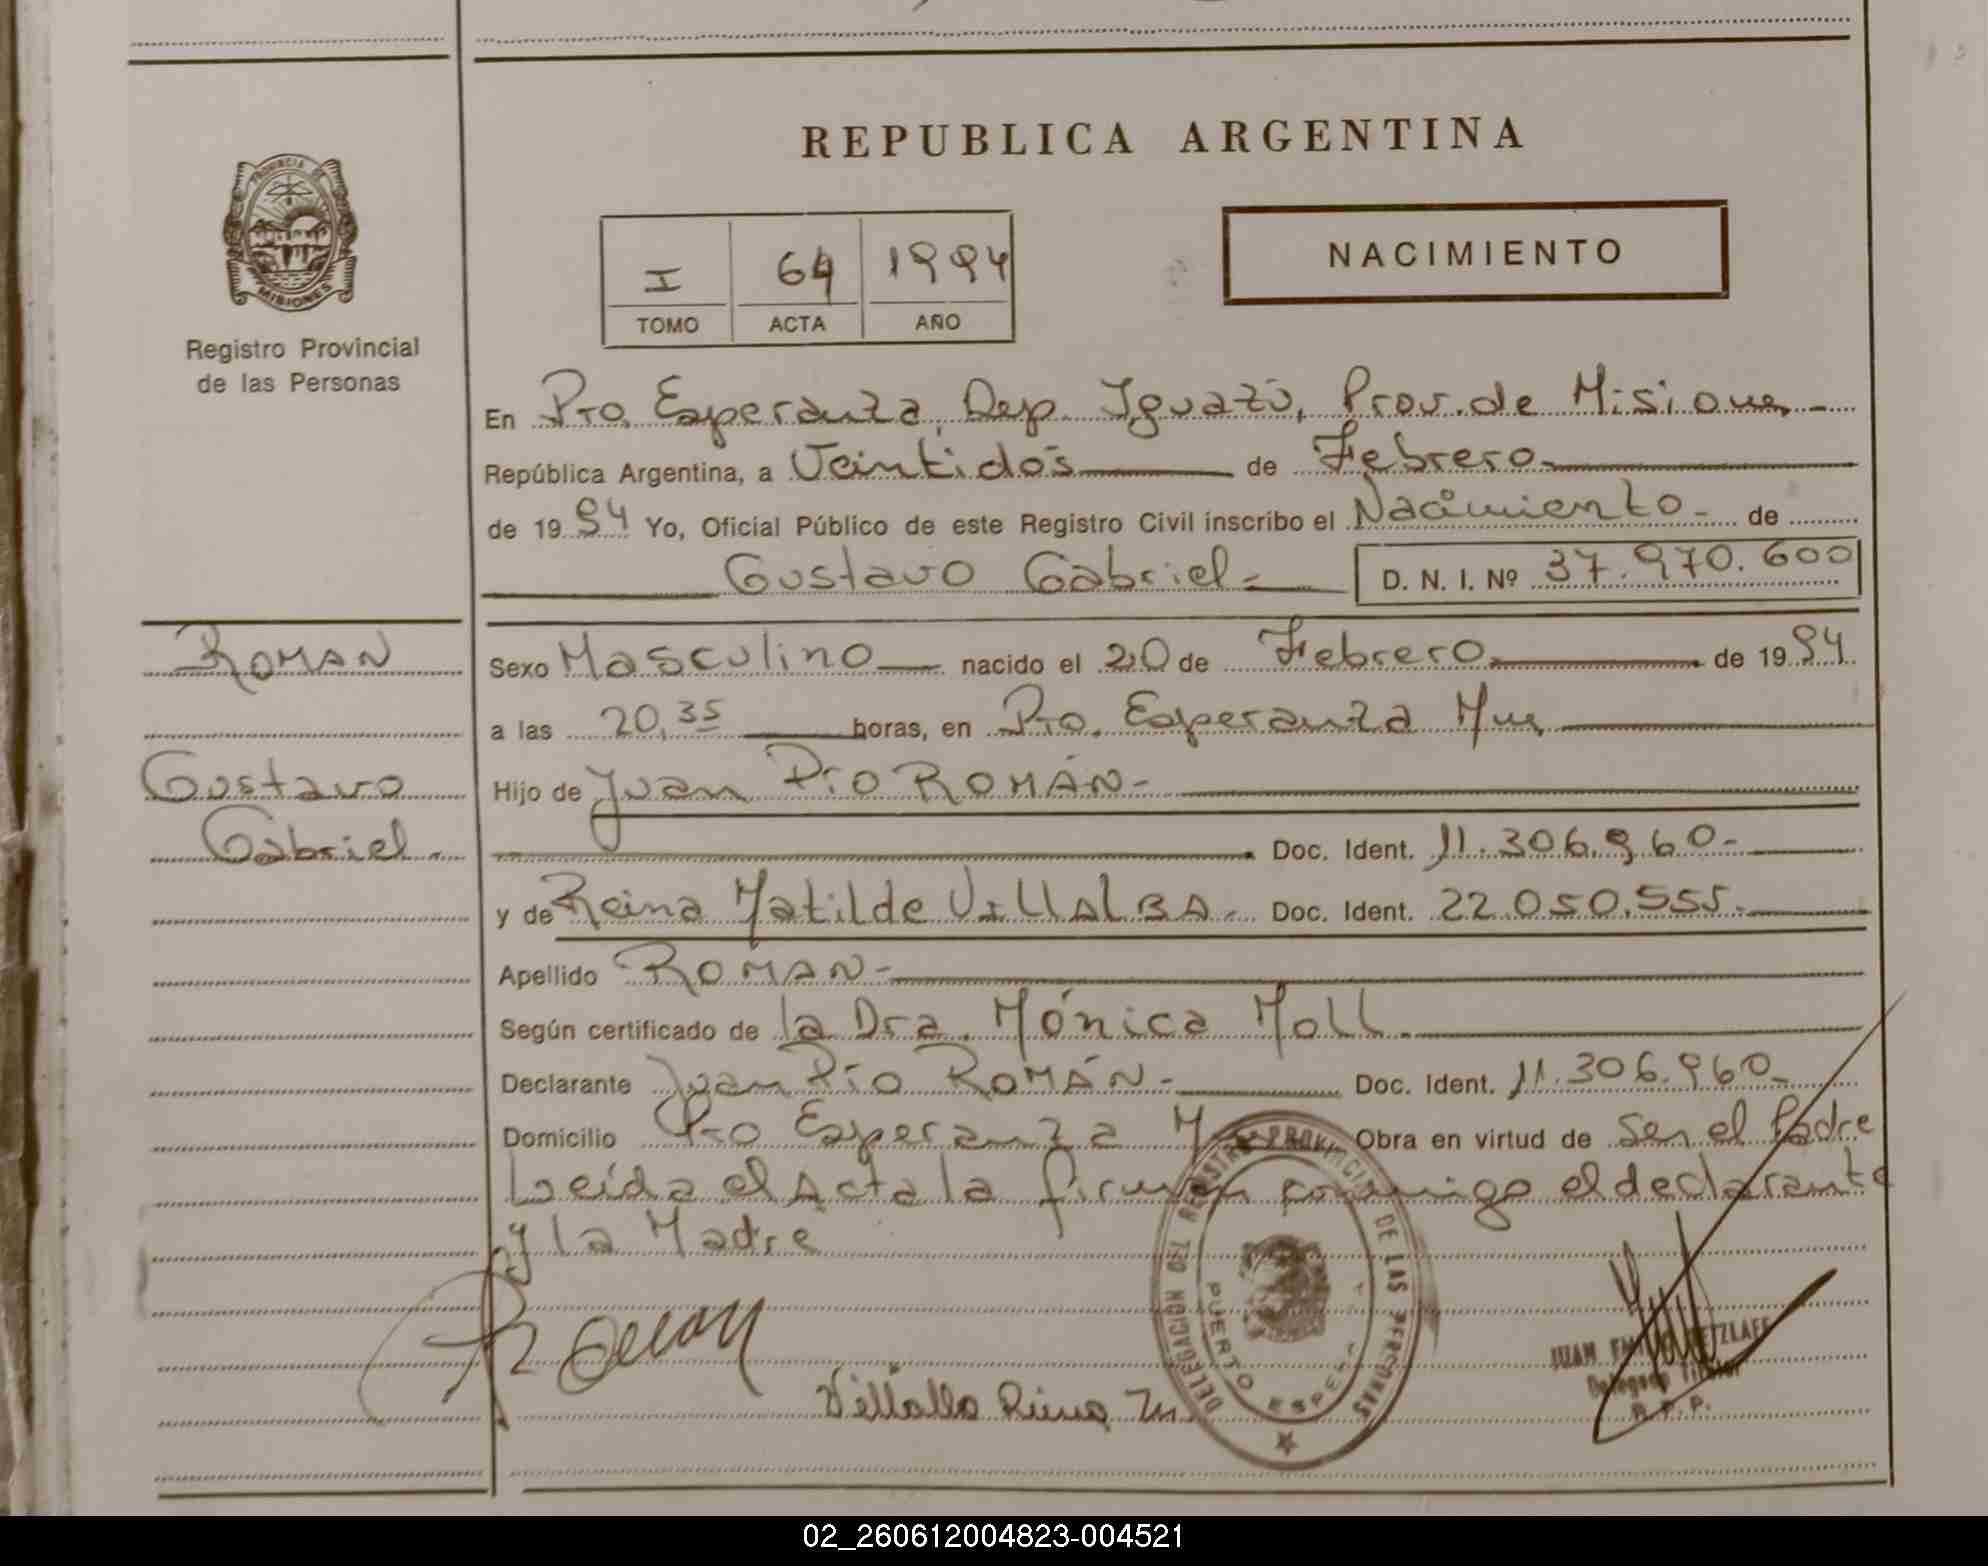 REPUBLICA ARGENTINA
PROVINCIA DE
MISIONES
Registro Provincial
de las Personas
I 64 1994
TOMO ACTA AÑO
NACIMIENTO
En Pto. Esperanza, Dep. Iguazú, Prov. de Misiones -
República Argentina, a Veintidós de Febrero.
de 1994 Yo, Oficial Público de este Registro Civil inscribo el Nacimiento - de
Gustavo Gabriel - D. N. I. Nº 37.970.600
ROMAN
Gustavo
Gabriel.
Sexo Masculino nacido el 20 de Febrero de 1994
a las 20,35 horas, en Pto. Esperanza Mnes
Hijo de Juan Pío ROMÁN-
Doc. Ident. 11.306.960-
y de Reina Matilde VILLALBA. Doc. Ident. 22.050.555.
Apellido ROMAN-
Según certificado de la Dra. Mónica Moll.
Declarante Juan Pío ROMÁN- Doc. Ident. 11.306.960-
Domicilio Pto Esperanza Obra en virtud de ser el Padre
Leída el Acta la firman conmigo el declarante
y la Madre
Roman
Villalba Reina M.
DELEGACION DEL REGISTRO PROVINCIAL DE LAS PERSONAS
PUERTO
JUAN RETZLAFF
Delegado Titular
R.P.P.
02_260612004823-004521